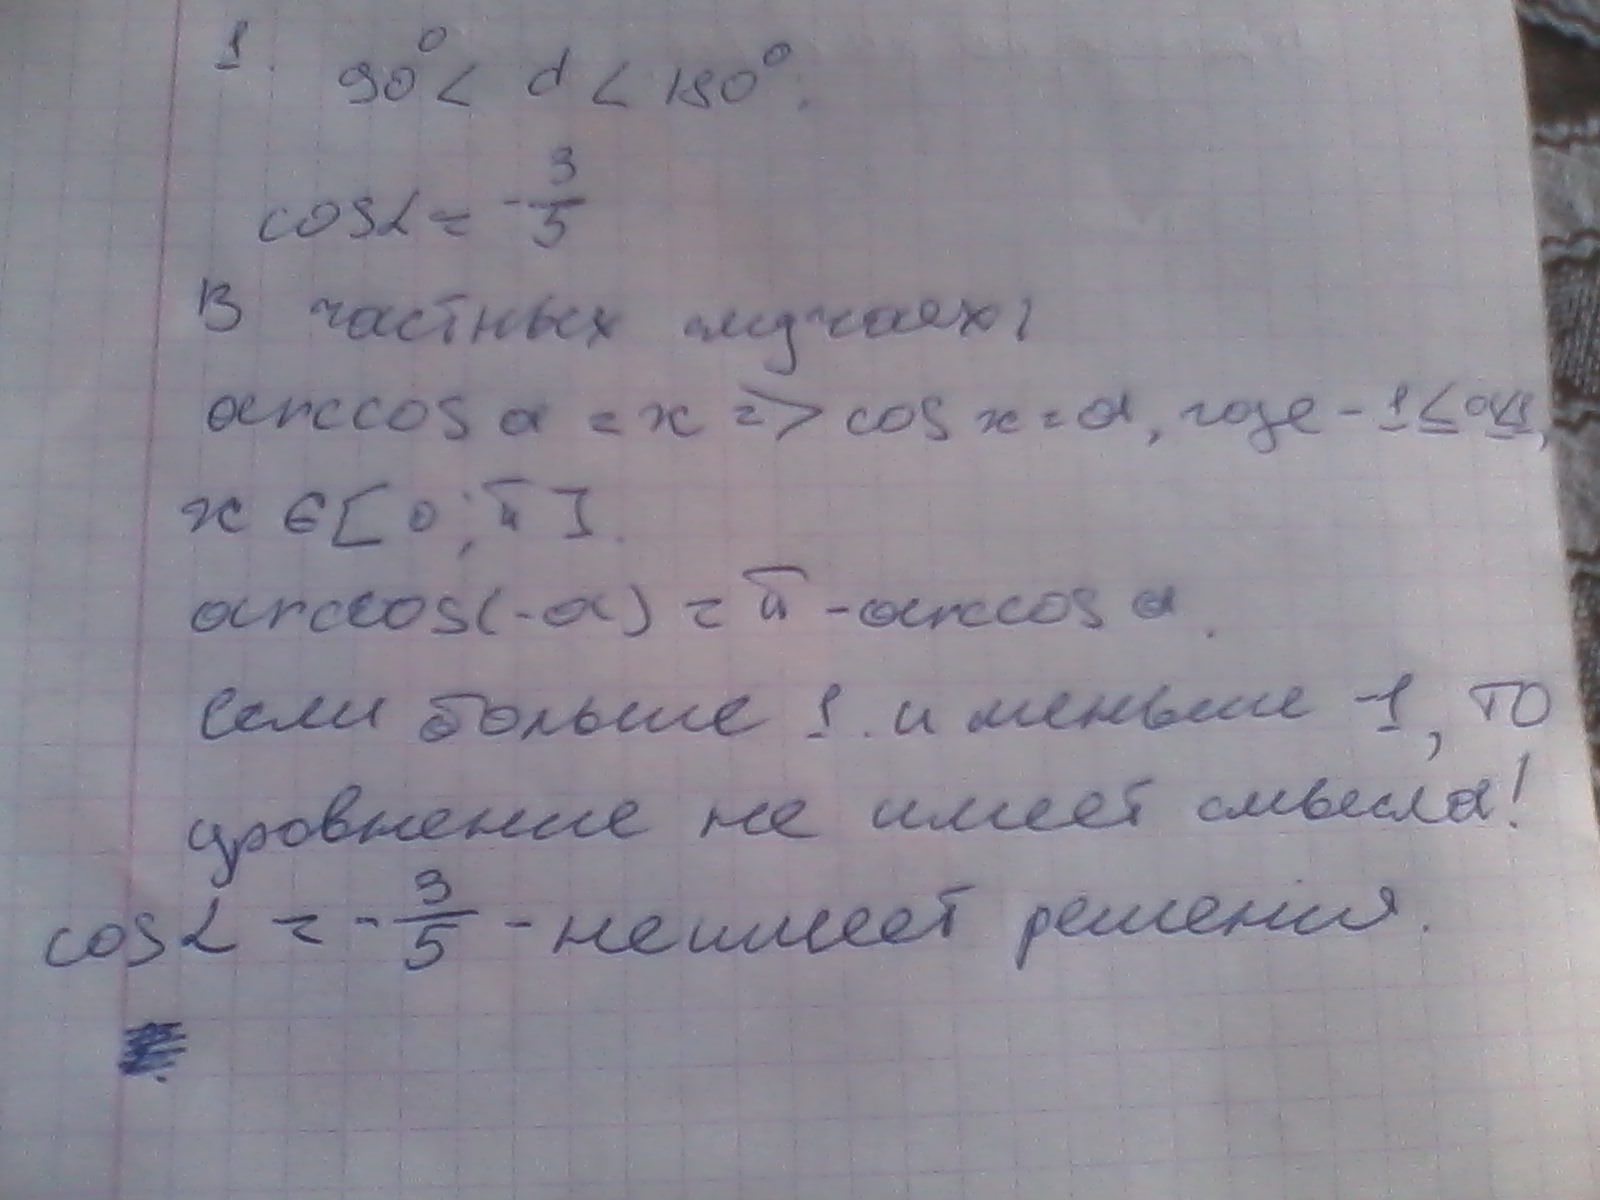 1. 90° < α < 180°.
cosα = -3/5
В частных случаях:
arccos a = x => cos x = a, где -1 ≤ a ≤ 1,
x ∈ [0; π].
arccos(-a) = π - arccos a.
Если больше 1. и меньше -1, то
уравнение не имеет смысла!
cosα = -3/5 - не имеет решения.